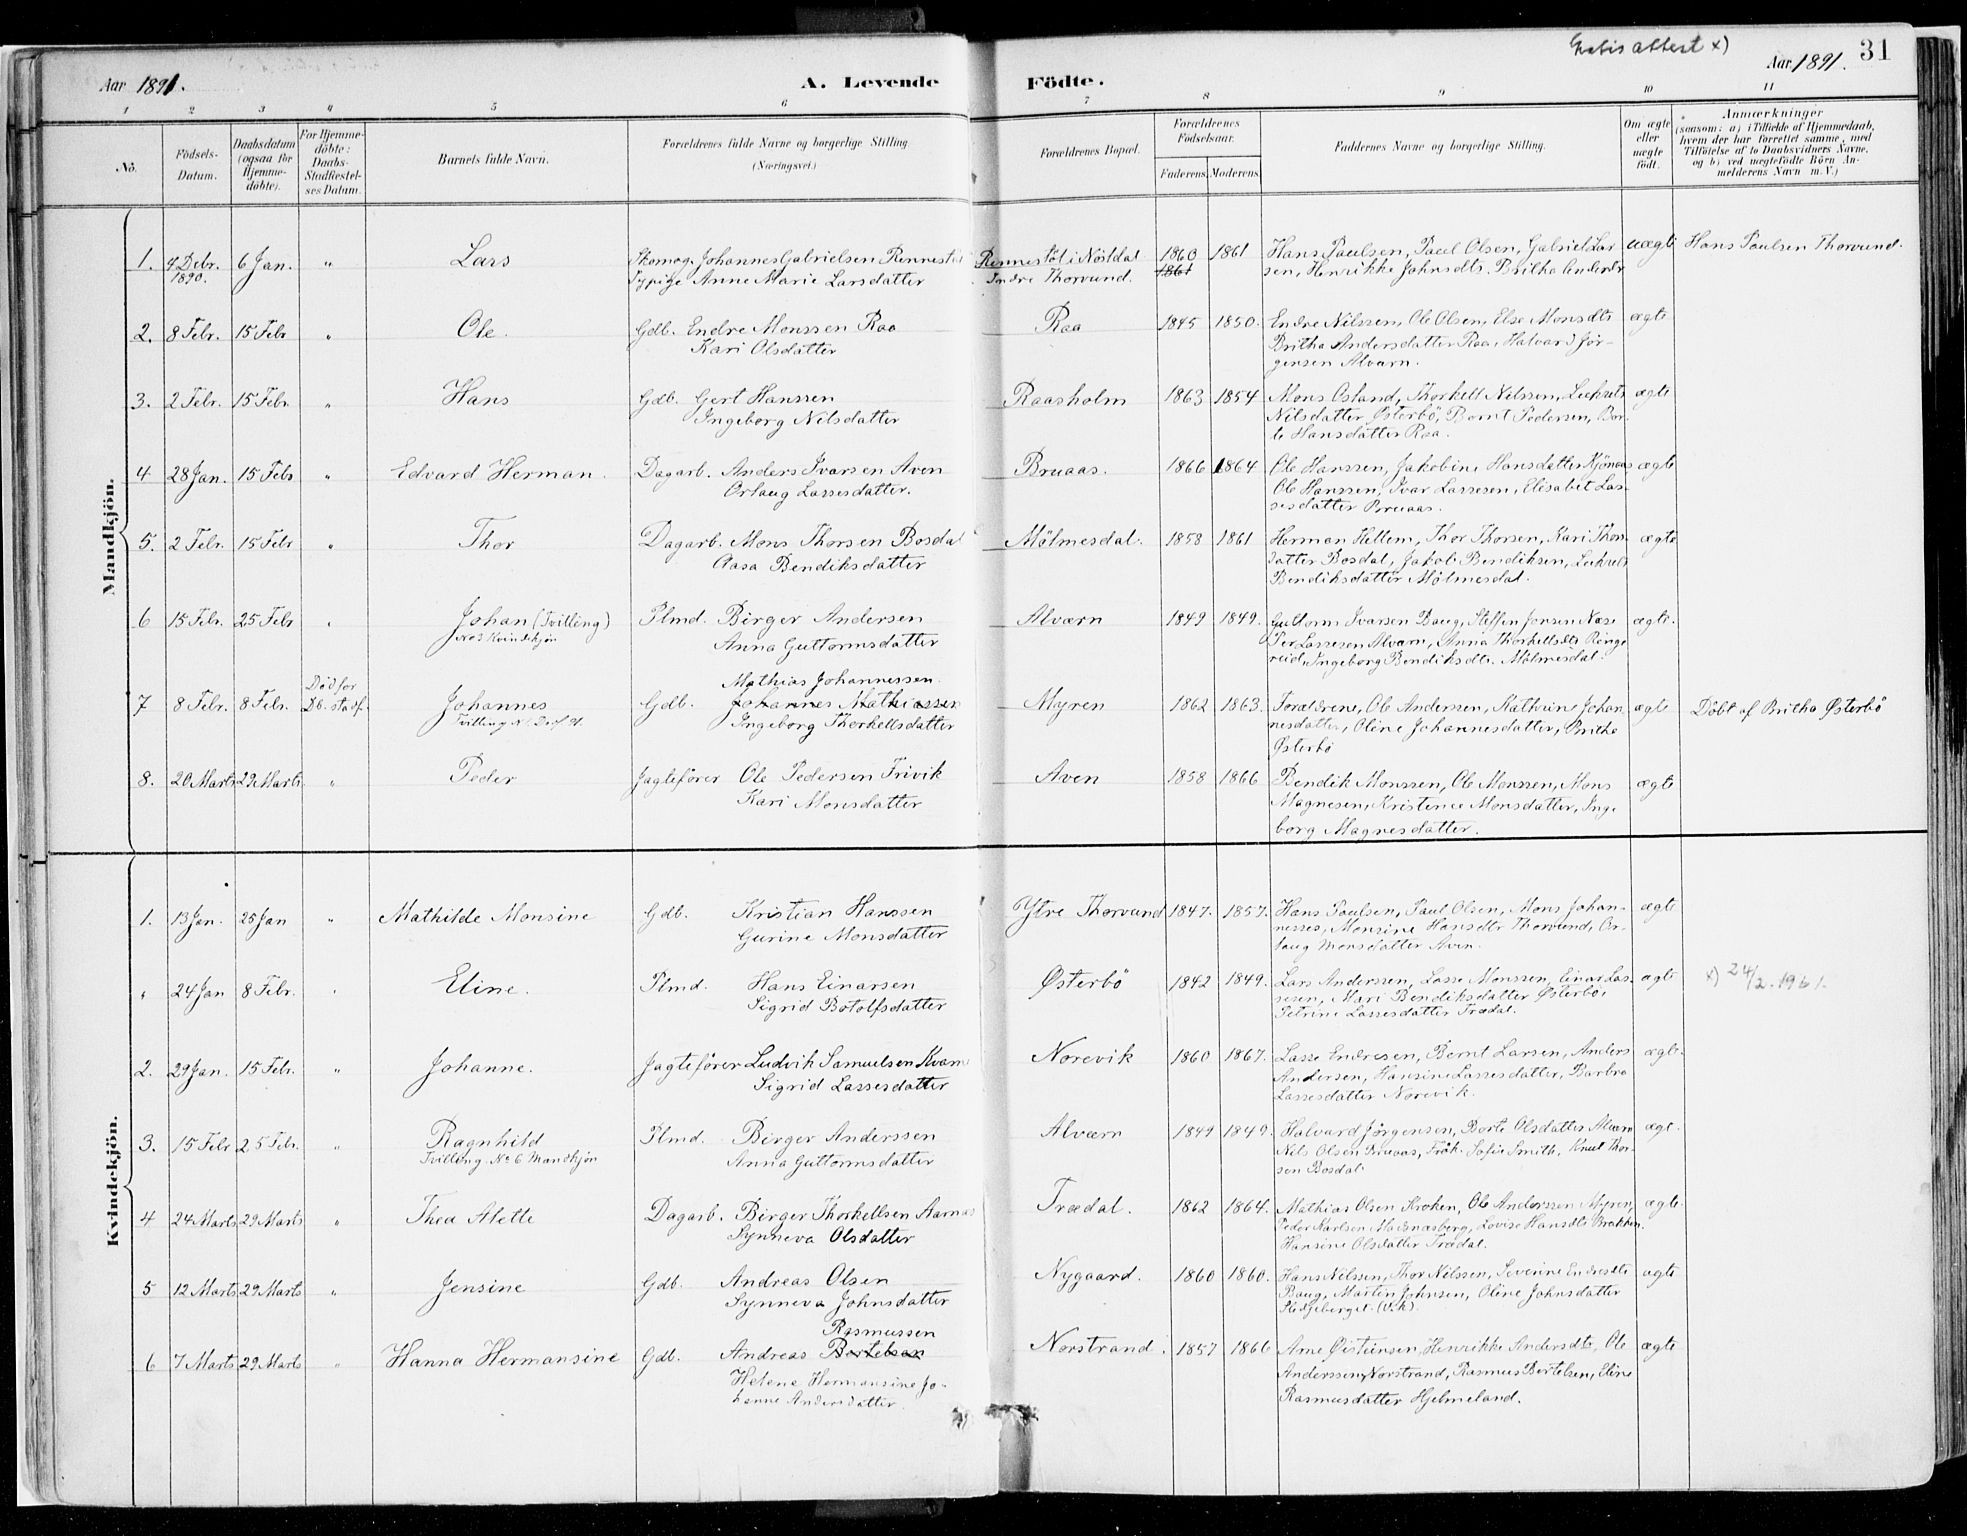 Gratis attest x)
31
Aar 1891.
A. Levende
Födte.
Aar 1891.
1 2 3 4 5 6 7 8 9 10 11
No.
Födsels-
Datum.
Daabsdatum
(ogsaa for
Hjemme-
döbte).
For Hjemme-
döbte:
Daabs-
Stadfæstel-
ses Datum.
Barnets fulde Navn.
Forældrenes fulde Navne og borgerlige Stilling
(Næringsvei.)
Forældrenes Bopæl.
Forældrenes
Födselsaar.
Faderens. Moderens.
Faddernes Navne og borgerlige Stilling.
Om ægte
eller
uægte
födt.
Anmærkninger
(saasom: a) i Tilfælde af Hjemmedaab,
hvem der har forrettet samme, med
Tilföielse af to Daabsvidners Navne,
og b) ved uægtefödte Börn An-
melderens Navn m. V.)
Mandkjön.
1. 4 Debr. 1890. 6 Jan. " Lars
Skomag. Johannes Gabrielsen Rennestöl
Sypige Anne Marie Larsdatter
Rennestöl i Nöstdal
Indre Thorvund.
1860 1861
1861
Hans Paulsen, Paul Olsen, Gabriel Lar
sen, Henrikke Johnsdtr. Britha Andersdr
uægte
Hans Paulsen Thorvund.
2. 8 Febr. 15 Febr " Ole.
Gdb. Endre Monssen Raa
Kari Olsdatter
Raa
1845 1850.
Endre Nilssen, Ole Olsen, Else Monsdtr
Britha Andersdatter Raa, Halvard Jör-
gensen Alværn.
ægte
3. 2 Febr. 15 Febr. " Hans
Gdb. Gert Hanssen
Ingeborg Nilsdatter
Raasholm
1863 1854
Mons Osland, Thorkell Nilsson,
Nilsdatter Østerbö, Bernt Pedersen, Bor-
te Hansdatter Raa.
ægte
4 28 Jan. 15 Febr " Edvard Herman.
Dagarb. Anders Ivarsen Aven
Orlaug Lassesdatter.
Bruaas.
1866 1864
Ole Hanssen, Jakobine Hansdatter
Ole Hanssen, Ivar Lassesen, Elisabet Las-
sesdatter Bruaas.
ægte
5. 2 Febr. 15 Febr " Thor
Dagarb. Mons Thorsen Bosdal
Aasa Bendiksdatter
Mölmesdal.
1858 1861
Herman Hellem, Thor Thorsen, Kari Thors-
datter Bosdal, Jakob Bendiksen,
Bendiksdatter Mölmesdal.
ægte
6 15 Febr. 25 Febr " Johan (Tvilling)
No 3 Kvindekjön
Plmd. Birger Andersen
Anna Guttormsdatter
Alværn
1849 1849.
Guttorm Ivarsen Baug, Steffen Jonsen Næse
Per Lassesen Alværn, Anna Thorkellsdtr Ringe
reid, Ingeborg Bendiksdtr. Mölmesdal.
ægte.
7 8 Febr. 8 Febr. Död för
Db. stadf.
Johannes
Mathias Johannessen.
Gdb. Johannes Mathiassen
Ingeborg Thorkellsdatter
Myren
1862 1863.
Forældrene, Ole Andersen, Kathrine Johan
nesdatter, Oline Johannesdatter, Britha
Østerbö
ægte
Döbt af Britha Østerbö
8. 20 Marts 29 Marts " Peder
Jagtefører Ole Pedersen Trivik
Kari Monsdatter
Aven
1858 1866
Bendik Monssen, Ole Monssen, Mons
Magnesen, Kristence Monsdatter, Inge
borg Magnesdatter.
ægte
Kvindekjön.
1. 13 Jan. 25 Jan " Mathilde Monsine
Gdb. Kristian Hanssen
Gurine Monsdatter
Ytre Thorvund
1847. 1857.
Hans Paulsen, Paul Olsen, Mons Johan-
nesses, Monsine Hansdtr Thorvund, Or-
laug Monsdatter Aven.
ægte
" 24 Jan 8 Febr. " Eline.
Plmd. Hans Einarsen
Sigrid Botolfsdatter
Østerbö
1842 1849.
Lars Anderssen, Lasse Monssen, Einar Las-
sesen, Mari Bendiksdatter Østerbö,
Petrine Lassesdatter Trædal.
ægte
x) 24/2.1961.
2. 29 Jan. 15 Febr. " Johanne.
Jagtefører Ludvik Samuelsen Kvam
Sigrid Lassesdatter
Norevik
1860 1867.
Lasse Endresen, Bernt Larsen, Anders
Andersen, Hansine Lassesdatter, Barbro
Lassesdatter Norevik.
ægte.
3. 15 Febr 25 Febr. " Ragnhild
Tvilling. No 6 Mandkjön
Plmd. Birger Anderssen
Anna Guttormsdatter
Alværn
1849 1849.
Halvard Jörgensen, Borte Olsdatter Alværn
Nils Olsen Bruaas, Frök. Sofie Smith, Knut Thor-
sen Bosdal.
ægt.
4 24 Marts 29 Marts " Thea Alette
Dagarb. Birger Thorkellsen Aarnes
Synneva Olsdatter
Trædal.
1862 1864.
Mathias Olsen Kroken, Ole Anderssen Myren,
Peder Karlsen Madsnæsberg, Lovise Hansdtr Brækken.
Hansine Olsdatter Trædal.
ægte.
5 12 Marts 29 Marts " Jensine
Gdb. Andreas Olsen
Synneva Johnsdatter
Nygaard.
1860 1860.
Hans Nilssen, Thor Nilssen, Severine Endresdtr
Baug, Martin Johnsen, Oline Johnsdatter
ægte
6 7 Marts 29 Marts " Hanna Hermansine
Rasmussen
Gdb. Andreas Bertelsen
Helene Hermansine Jo-
hanne Andersdatter.
Norstrand.
1857 1866
Arne Øistensen, Henrikke Andersdtr, Ole
Anderssen, Norstrand, Rasmus Bertelsen, Eline
Rasmusdatter Hjelmeland.
ægte